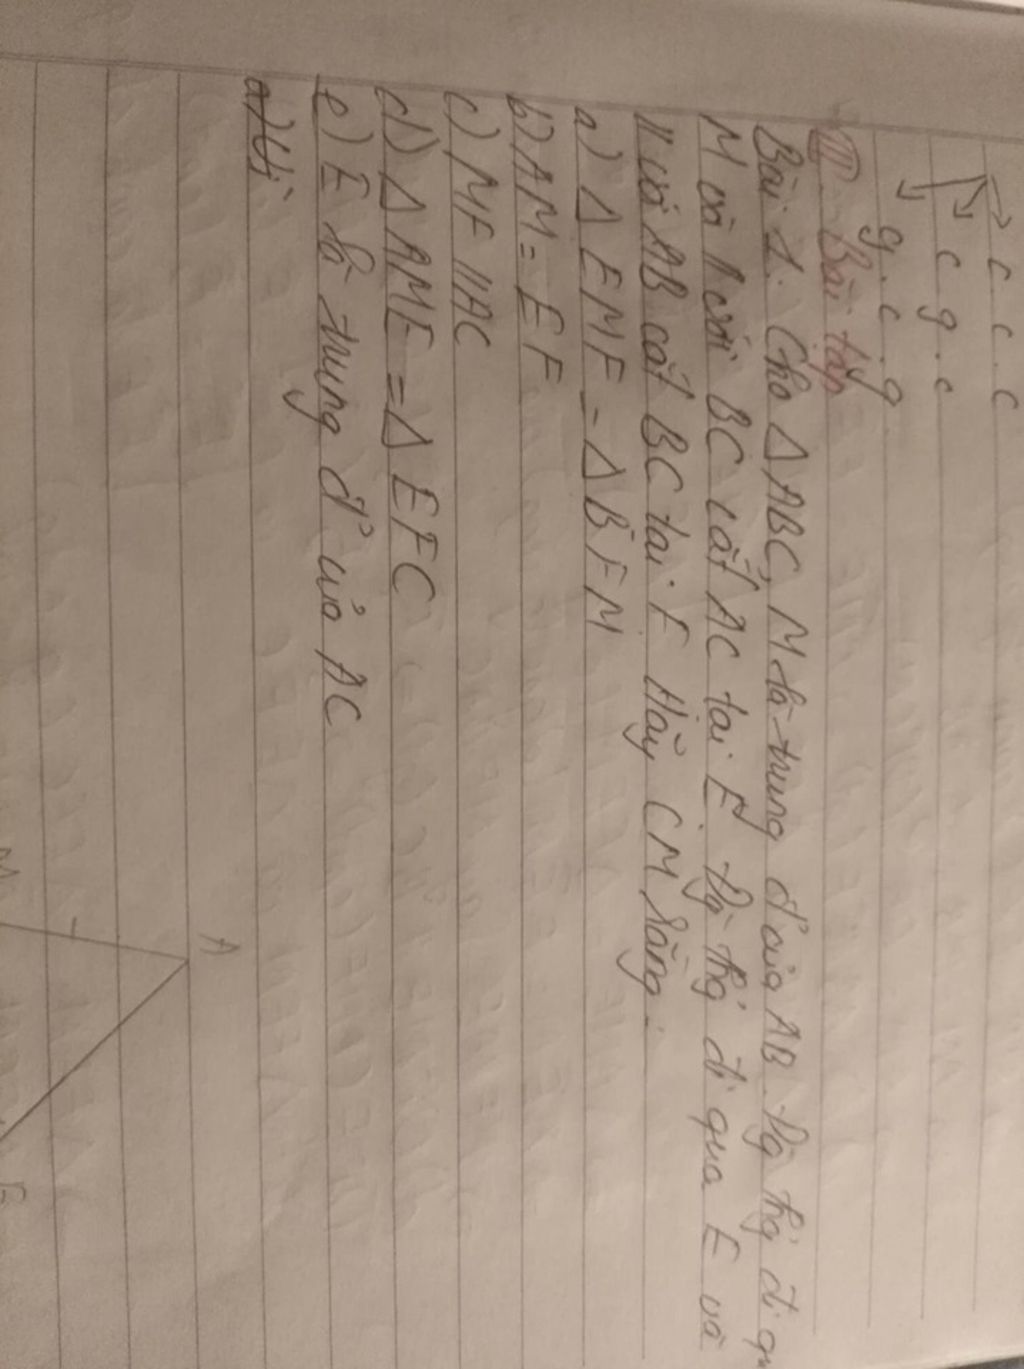 c.c.c
c.g.c
g.c.g
III. Bài tập
Bài 1. Cho Δ ABC, M là trung đ' của AB. Đg thg đi qu
M và // với BC cắt AC tại E. Đg thg đi qua E và
// với AB cắt BC tại F. Hãy CM rằng:
a) Δ EMF = Δ BFM
b) AM = EF
c) MF // AC
d) Δ AME = Δ EFC
e) E là trung đ' của AC
a) Vì
A
M
E